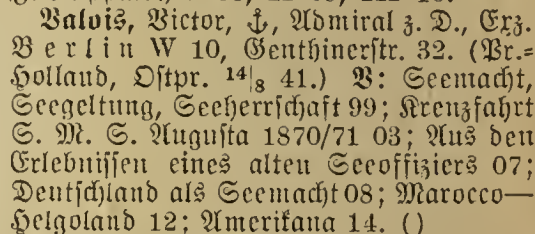 Valois, Victor, ⚓, Admiral z. D., Erz.
Berlin W 10, Genthinerstr. 32. (Pr.=
Holland, Ostpr. 14|8 41.) V: Seemacht,
Seegeltung, Seeherrschaft 99; Krenzfahrt
S. M. S. Augusta 1870/71 03; Aus den
Erlebnissen eines alten Seeoffiziers 07;
Deutschland als Seemacht 08; Marocco—
Helgoland 12; Amerikana 14. ()